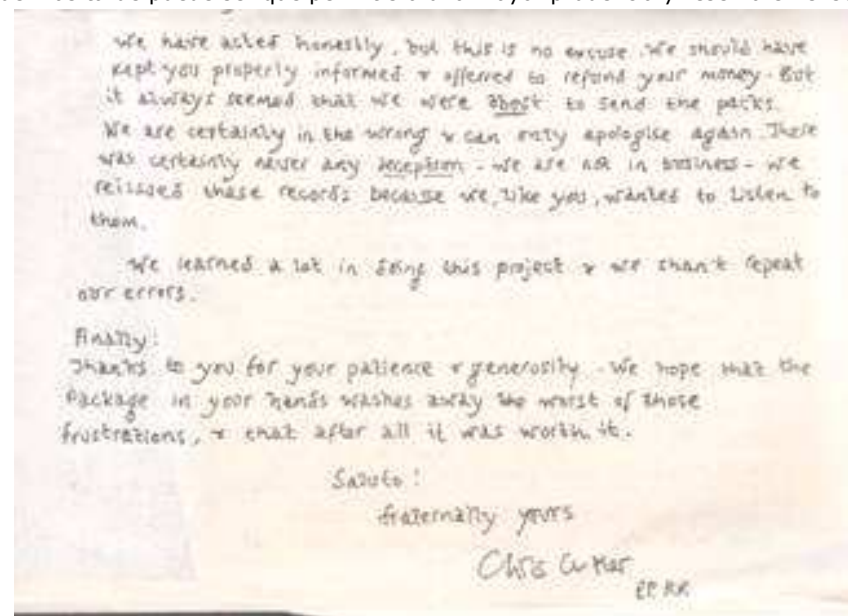 We have acted honestly, but this is no excuse. We should have
kept you properly informed & offered to refund your money. But
it always seemed that we were about to send the packs.
We are certainly in the wrong & can only apologise again. There
was certainly never any deception - we are not in business - we
reissued these records because we, like you, wanted to listen to
them.
We learned a lot in doing this project & we shan't repeat
our errors.
Finally!
Thanks to you for your patience & generosity. We hope that the
Package in your hands washes away the worst of those
frustrations, & that after all it was worth it.
Saluto!
fraternally yours
Chris Cutler
pp RR